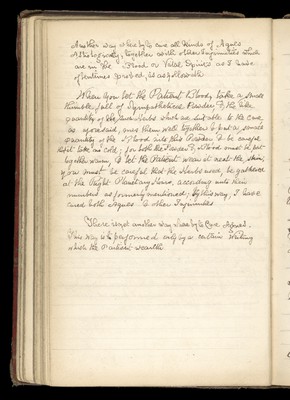 Another way whereby to cure all kinds of Agues
Astrologically, together with other Infirmities which
are in the Blood or Vital Spirits as I have
oftentimes proved, is as followeth
When you let the Patient Blood, take a small
thimble full of Sympatheticall Powder, & the like
quantity of the Herbs which are suitable to the Cure,
as aforesaid, mix them well together & put a small
quantity of the Blood into this Powder & be careful
it take no Cold; for both the Powder & Blood must be put
together warm, & let the Patient wear it next the skin;
you must be careful that the Herbs used, be gathered
at the Right Planetary Hour, according unto their
number as formerly mentioned; by this way, I have
cured both Agues & other Infirmities
There is yet another way whereby to Cure Agues.
This way is performed only by a certain Writing
which the Patient weareth